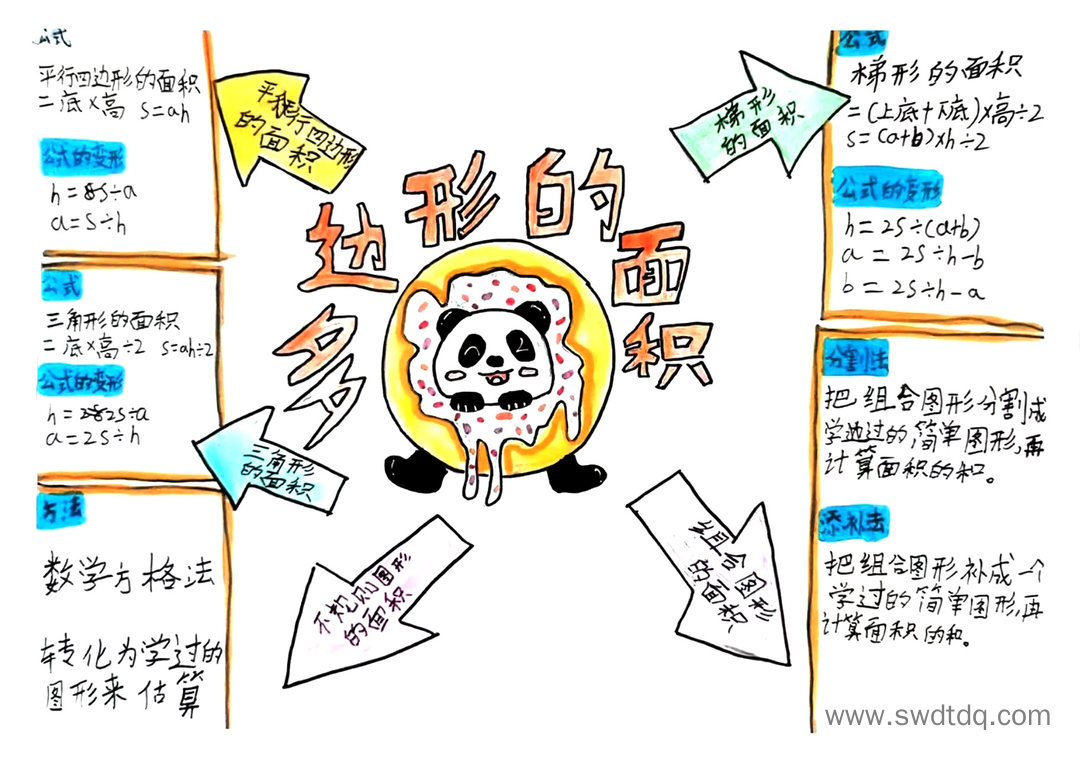 多边形的面积
公式
平行四边形的面积
=底×高 S=ah
公式的变形
h=S÷a
a=S÷h
平行四边形
的面积
公式
三角形的面积
=底×高÷2 S=ah÷2
公式的变形
h=2S÷a
a=2S÷h
三角形
的面积
方法
数学方格法
转化为学过的
图形来估算
不规则图形
的面积
梯形
的面积
公式
梯形的面积
=(上底+下底)×高÷2
S=(a+b)×h÷2
公式的变形
h=2S÷(a+b)
a=2S÷h-b
b=2S÷h-a
组合图形
的面积
分割法
把组合图形分割成
学过的简单图形,再
计算面积的和。
添补法
把组合图形补成一个
学过的简单图形,再
计算面积的和。
www.swdtdq.com